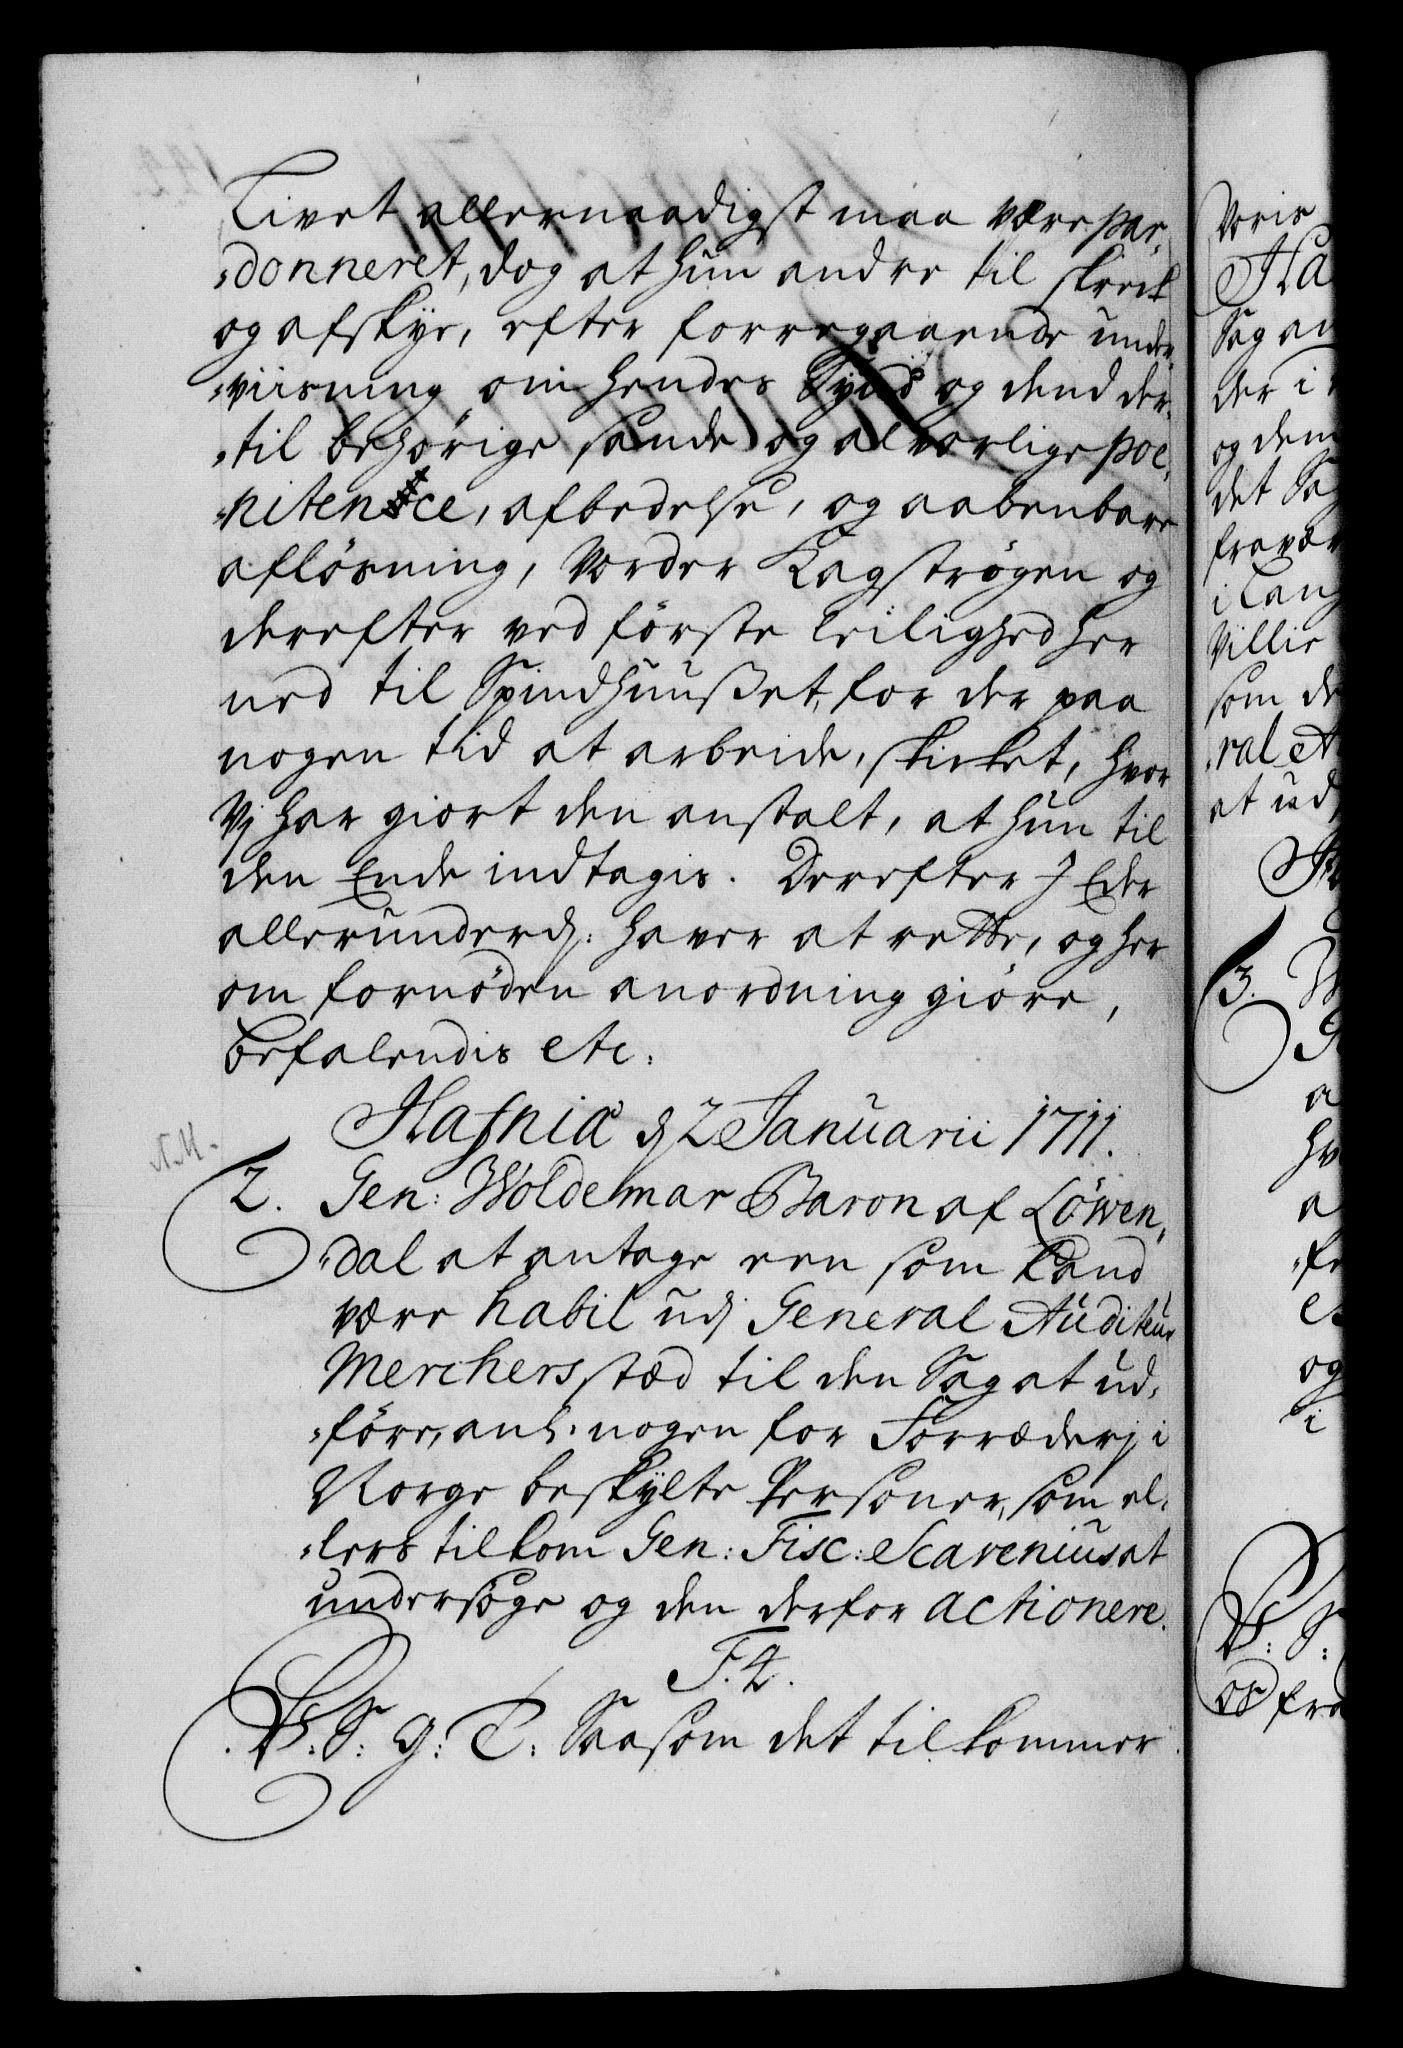 Livet allernaadigst maa være par,
,donneret, dog at hun andre til skrek
og afskye, efter forregaaende under
,viisning om hendes Synd og dend der,
,til behørige sande og alvorlige poe,
,nitence, afbedelse, og aabenbare
afløsning, vorder Kagstrøgen og
derefter ved første leilighed her
ned til Spindhuusset, for der paa
nogen tid at arbeide, skicket, hvor
Vj har giort den anstalt, at hun til
den Ende indtagis. Derefter I Eder
allerunderd: haver at rette, og her
om fornøden anordning giøre,
befalendis etc:
Hafniæ d 2 Januarii 1711.
N.M.
2. Gen: Woldemar Baron af Löwen,
,dal at antage een som kand
være habil udj General Auditeur
Merchers stæd til den Sag at ud,
,føre, anl: nogen for Forræderj i
Norge beskylte Personer, som el,
,lers tilkom Gen: Fisc: Scavenius at
undersøge og den derfor actionere.
F. 4.
V: S: G: T: Saasom det tilkommer
Voris
Sag an
der i
og dem
det Sag
fravær
Villie
som de
,ral A
at ud,
3.
og
i